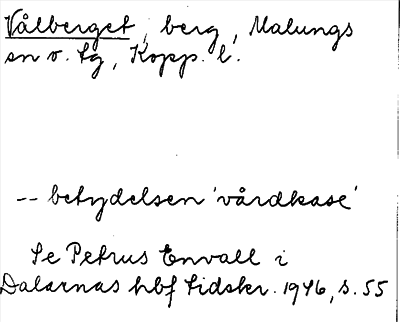 Vålberget, berg, Malungs
sn o. tg, Kopp. l.
-- betydelsen 'vårdkase'
Se Petrus Envall i
Dalarnas hbf tidskr. 1946, s. 55